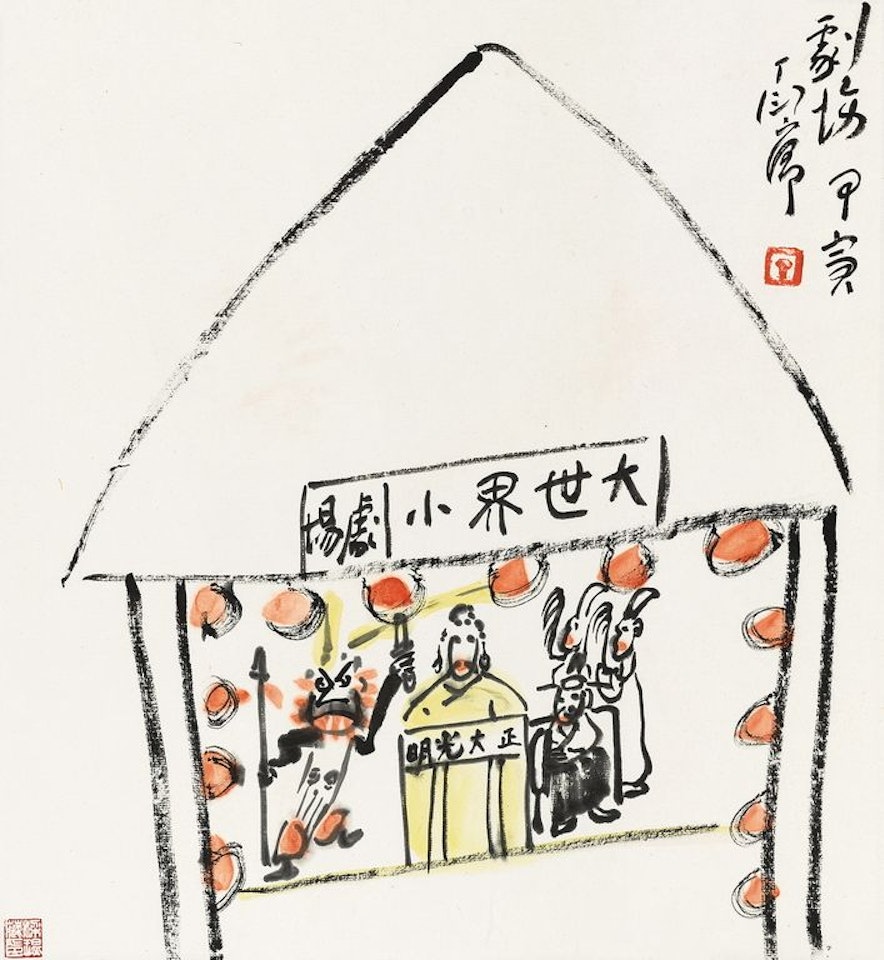 劇場 甲寅
丁衍庸
大世界小劇場
正大光明